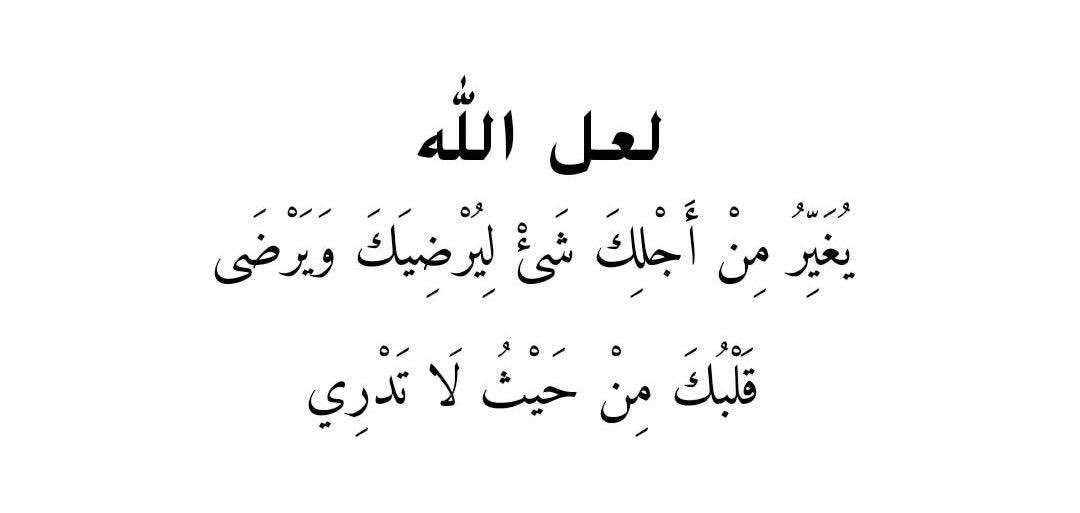 لعل الله
يُغَيِّرُ مِنْ أَجْلِكَ شَىْٔ لِيُرْضِيَكَ وَيَرْضَى
قَلْبُكَ مِنْ حَيْثُ لَا تَدْرِي